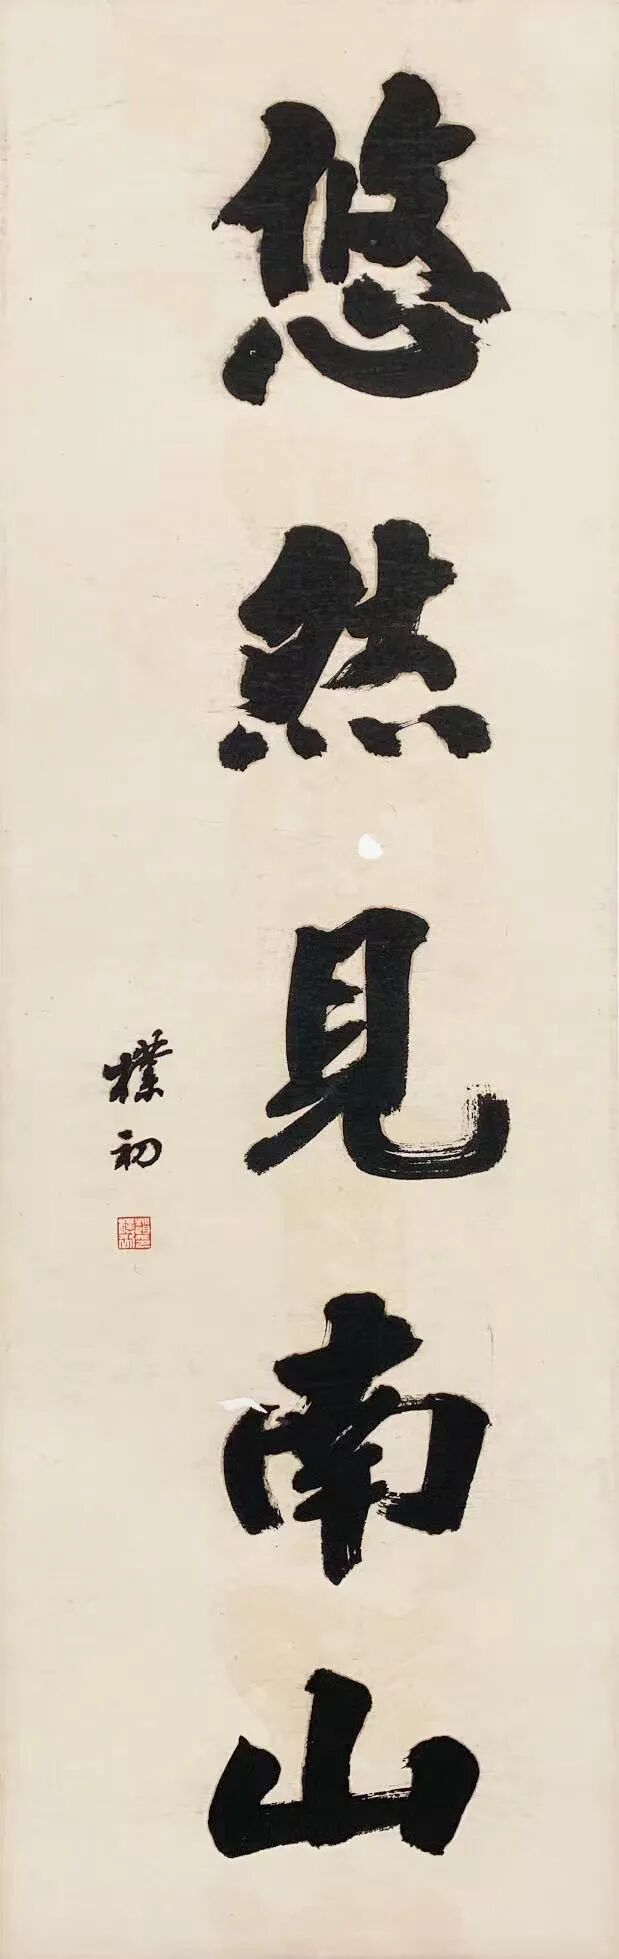 悠然見南山
樸初